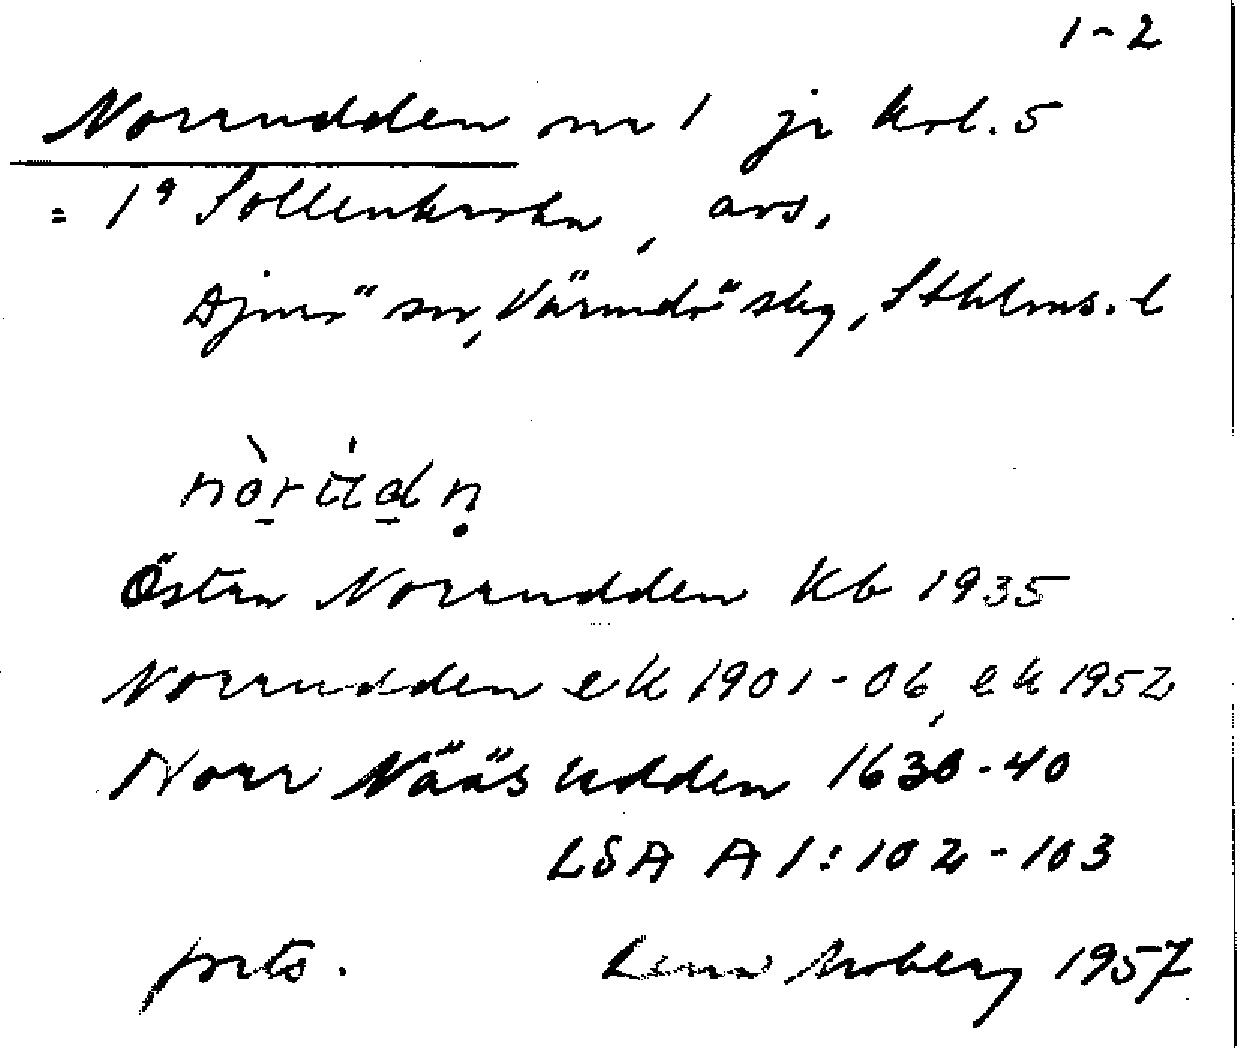 1-2
Norrudden nr 1 jr krl. 5
= 1⁹ Sollenkroka, avs.
Djurö sn, Värmdö skg, Sthlms. l
nòr u̍dṇ
Östra Norrudden Kb 1935
Norrudden ek 1901-06, ek 1952
Norr Nääs udden 1630-40
LSA A 1:102-103
forts. Lena Moberg 1957